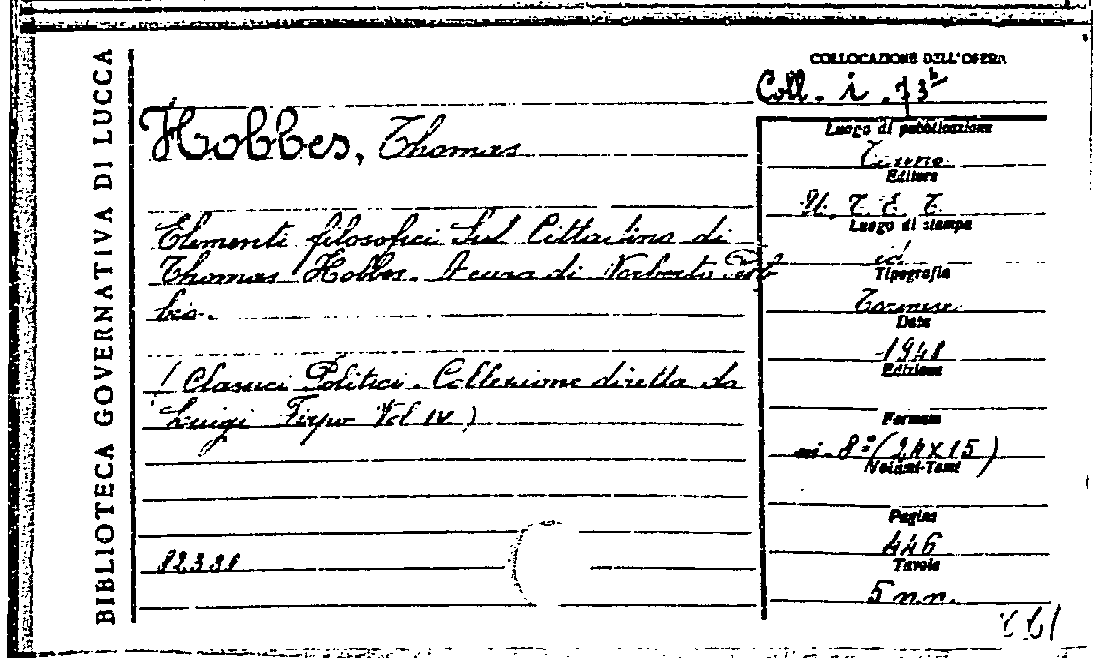 BIBLIOTECA GOVERNATIVA DI LUCCA
Hobbes, Thomas
Elementi filosofici sul Cittadino di
Thomas Hobbes. A cura di Norberto Bob
bio.
( Classici Politici. Collezione diretta da
Luigi Firpo Vol IV )
COLLOCAZIONE DELL'OPERA
Coll. i. 73 b
Luogo di pubblicazione
Torino
Editore
U. T. E. T.
Luogo di stampa
id
Tipografia
Torinese
Data
1948
Edizione
Formato
in-8° (24x15)
Volumi-Tomi
Pagine
446
Tavole
5 n.n.